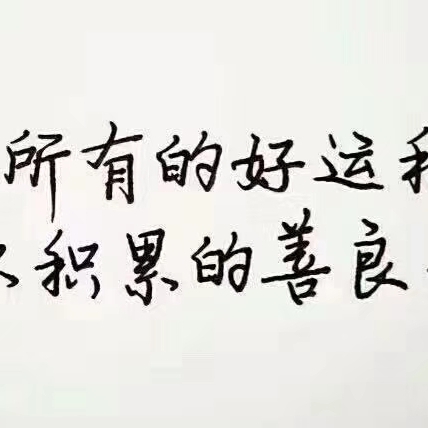 所有的好运
积累的善良